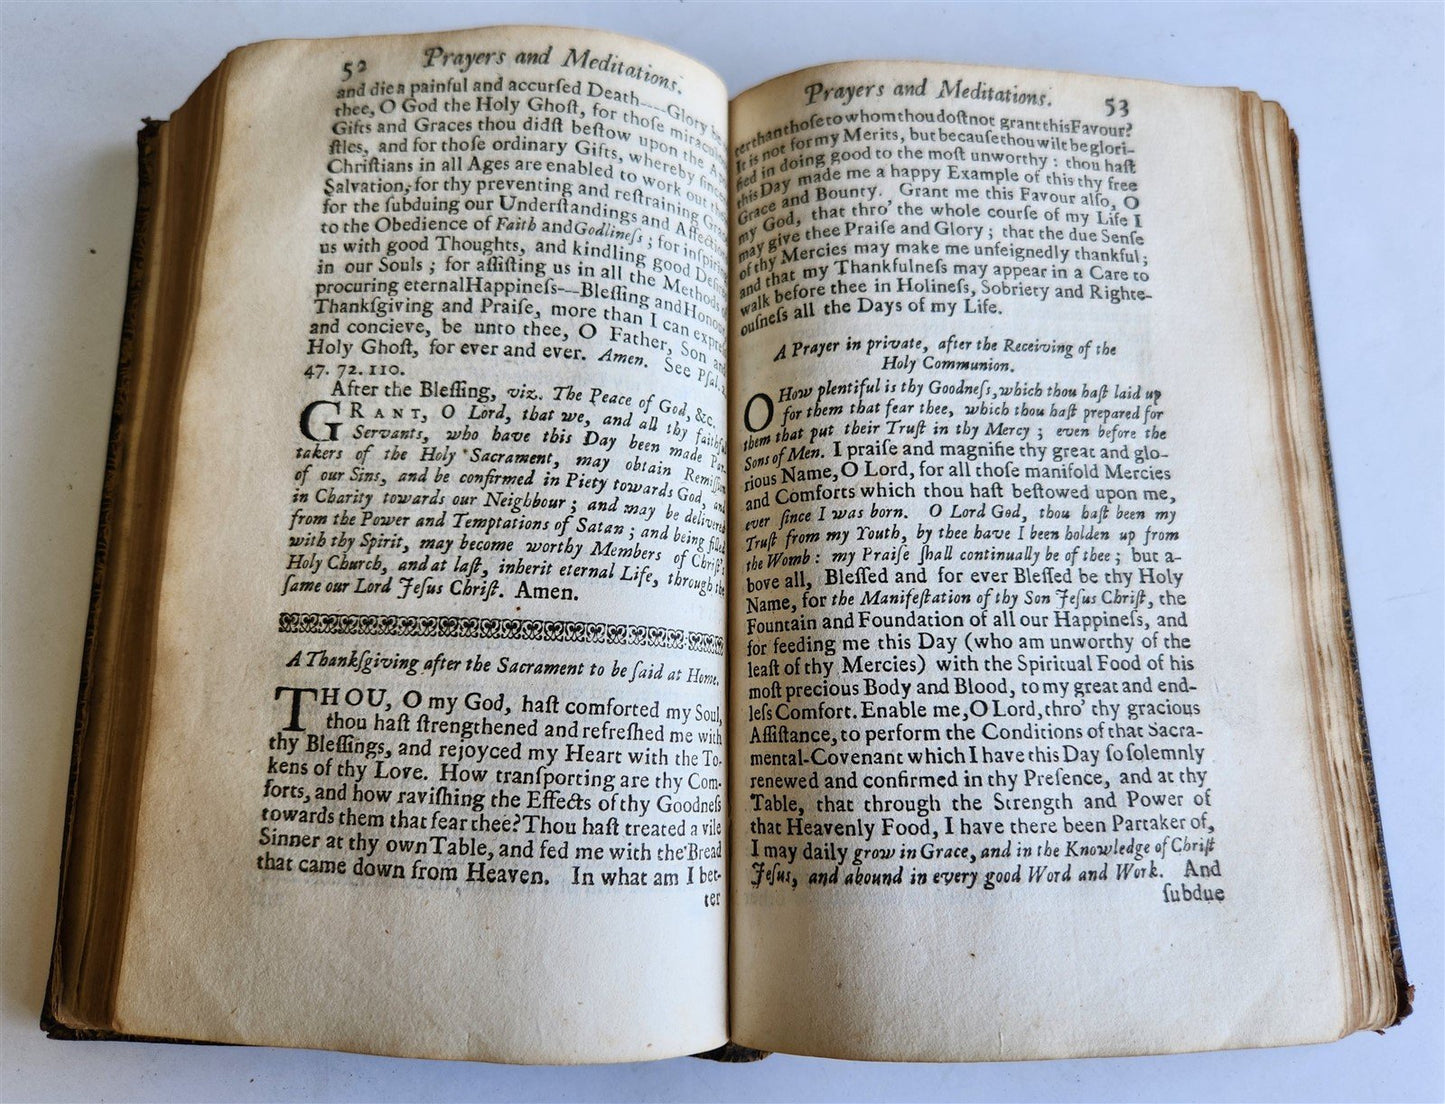 52 Prayers and Meditations.
and die a painful and accurſed Death—Glory be
thee, O God the Holy Ghoſt, for thoſe miraculous
Gifts and Graces thou didſt beſtow upon the A
ſtles, and for thoſe ordinary Gifts, whereby ſince
Chriſtians in all Ages are enabled to work out their
Salvation, for thy preventing and reſtraining Grace
for the ſubduing our Underſtandings and Affection
to the Obedience of Faith and Godlineſs; for inſpiring
us with good Thoughts, and kindling good Deſires
in our Souls; for aſſiſting us in all the Methods of
procuring eternal Happineſs—Bleſſing and Honour
Thankſgiving and Praiſe, more than I can expreſs
and concieve, be unto thee, O Father, Son and
Holy Ghoſt, for ever and ever. Amen. See Pſal.
47. 72. 110.
After the Bleſſing, viz. The Peace of God, &c.
GRANT, O Lord, that we, and all thy faithful
Servants, who have this Day been made Par-
takers of the Holy Sacrament, may obtain Remiſſion
of our Sins, and be confirmed in Piety towards God, and
in Charity towards our Neighbour; and may be delivered
from the Power and Temptations of Satan; and being filled
with thy Spirit, may become worthy Members of Chriſt's
Holy Church, and at laſt, inherit eternal Life, through the
ſame our Lord Jeſus Chriſt. Amen.
A Thankſgiving after the Sacrament to be ſaid at Home.
THOU, O my God, haſt comforted my Soul,
thou haſt ſtrengthened and refreſhed me with
thy Bleſſings, and rejoyced my Heart with the To-
kens of thy Love. How tranſporting are thy Com-
forts, and how raviſhing the Effects of thy Goodneſs
towards them that fear thee? Thou haſt treated a vile
Sinner at thy own Table, and fed me with the Bread
that came down from Heaven. In what am I bet-
ter
Prayers and Meditations. 53
ter than thoſe to whom thou doſt not grant this Favour?
It is not for my Merits, but becauſe thou wilt be glori-
fied in doing good to the moſt unworthy: thou haſt
this Day made me a happy Example of this thy free
Grace and Bounty. Grant me this Favour alſo, O
my God, that thro' the whole courſe of my Life I
may give thee Praiſe and Glory; that the due Senſe
of thy Mercies may make me unfeignedly thankful;
and that my Thankfulneſs may appear in a Care to
walk before thee in Holineſs, Sobriety and Righte-
ouſneſs all the Days of my Life.
A Prayer in private, after the Receiving of the
Holy Communion.
O How plentiful is thy Goodneſs, which thou haſt laid up
for them that fear thee, which thou haſt prepared for
them that put their Truſt in thy Mercy; even before the
Sons of Men. I praiſe and magnifie thy great and glo-
rious Name, O Lord, for all thoſe manifold Mercies
and Comforts which thou haſt beſtowed upon me,
ever ſince I was born. O Lord God, thou haſt been my
Truſt from my Youth, by thee have I been holden up from
the Womb: my Praiſe ſhall continually be of thee; but a-
bove all, Bleſſed and for ever Bleſſed be thy Holy
Name, for the Manifeſtation of thy Son Jeſus Chriſt, the
Fountain and Foundation of all our Happineſs, and
for feeding me this Day (who am unworthy of the
leaſt of thy Mercies) with the Spiritual Food of his
moſt precious Body and Blood, to my great and end-
leſs Comfort. Enable me, O Lord, thro' thy gracious
Aſſiſtance, to perform the Conditions of that Sacra-
mental-Covenant which I have this Day ſo ſolemnly
renewed and confirmed in thy Preſence, and at thy
Table, that through the Strength and Power of
that Heavenly Food, I have there been Partaker of,
I may daily grow in Grace, and in the Knowledge of Chriſt
Jeſus, and abound in every good Word and Work. And
ſubdue